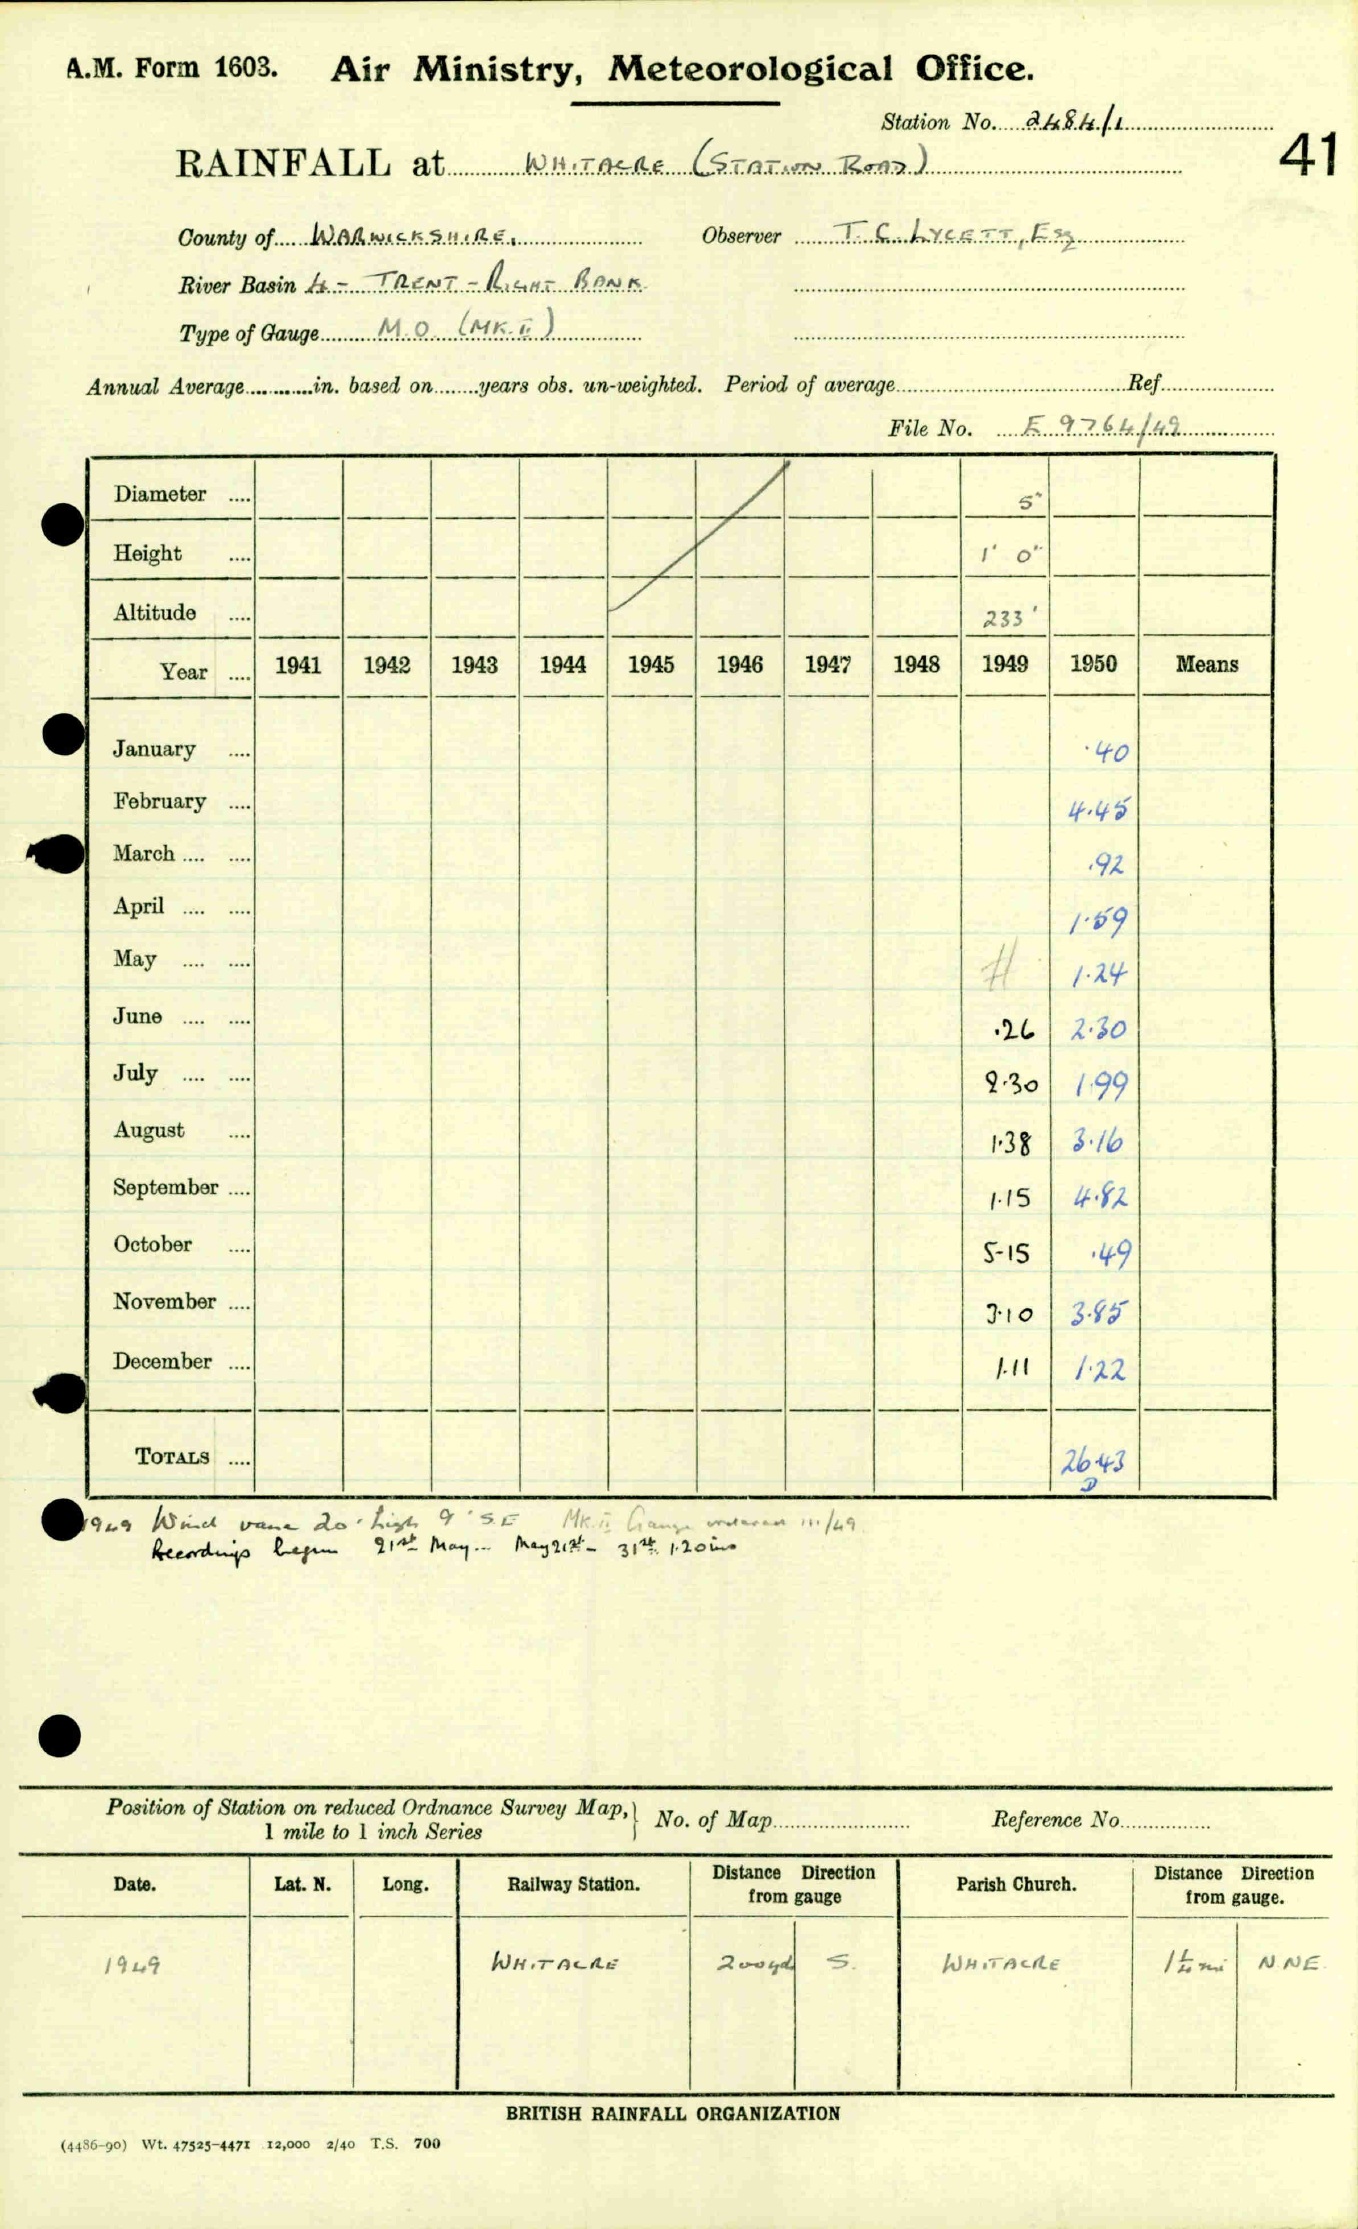 A.M. Form 1603. Air Ministry, Meteorological Office.
Station No. 2484/1
41
RAINFALL at WHITACRE (STATION ROAD)
County of WARWICKSHIRE. Observer T. C. LYCETT, Esq
River Basin 4 - TRENT - RIGHT BANK
Type of Gauge M.O. (MK. II)
Annual Average............in. based on........years obs. un-weighted. Period of average............Ref............
File No. E 9764/49
Diameter .... 5"
Height .... 1' 0"
Altitude .... 233'
Year .... 1941 1942 1943 1944 1945 1946 1947 1948 1949 1950 Means
January .... .40
February .... 4.45
March .... .... .92
April .... .... 1.59
May .... .... // 1.24
June .... .... .26 2.30
July .... .... 2.30 1.99
August .... 1.38 3.16
September .... 1.15 4.82
October .... 5-15 .49
November .... 3.10 3.85
December .... 1.11 1.22
TOTALS .... 26.43
D
1949 Wind vane 20' high 9' SE MK. II Gauge /49
Recordings began 21st May... May 21st - 31st. 1.20 ins
Position of Station on reduced Ordnance Survey Map, } No. of Map............ Reference No............
1 mile to 1 inch Series
Date. Lat. N. Long. Railway Station. Distance Direction from gauge Parish Church. Distance Direction from gauge.
1949 WHITACRE 200yd S. WHITACRE 1 1/4 mi NNE.
BRITISH RAINFALL ORGANIZATION
(4486-90) Wt. 47525-4471 12,000 2/40 T.S. 700